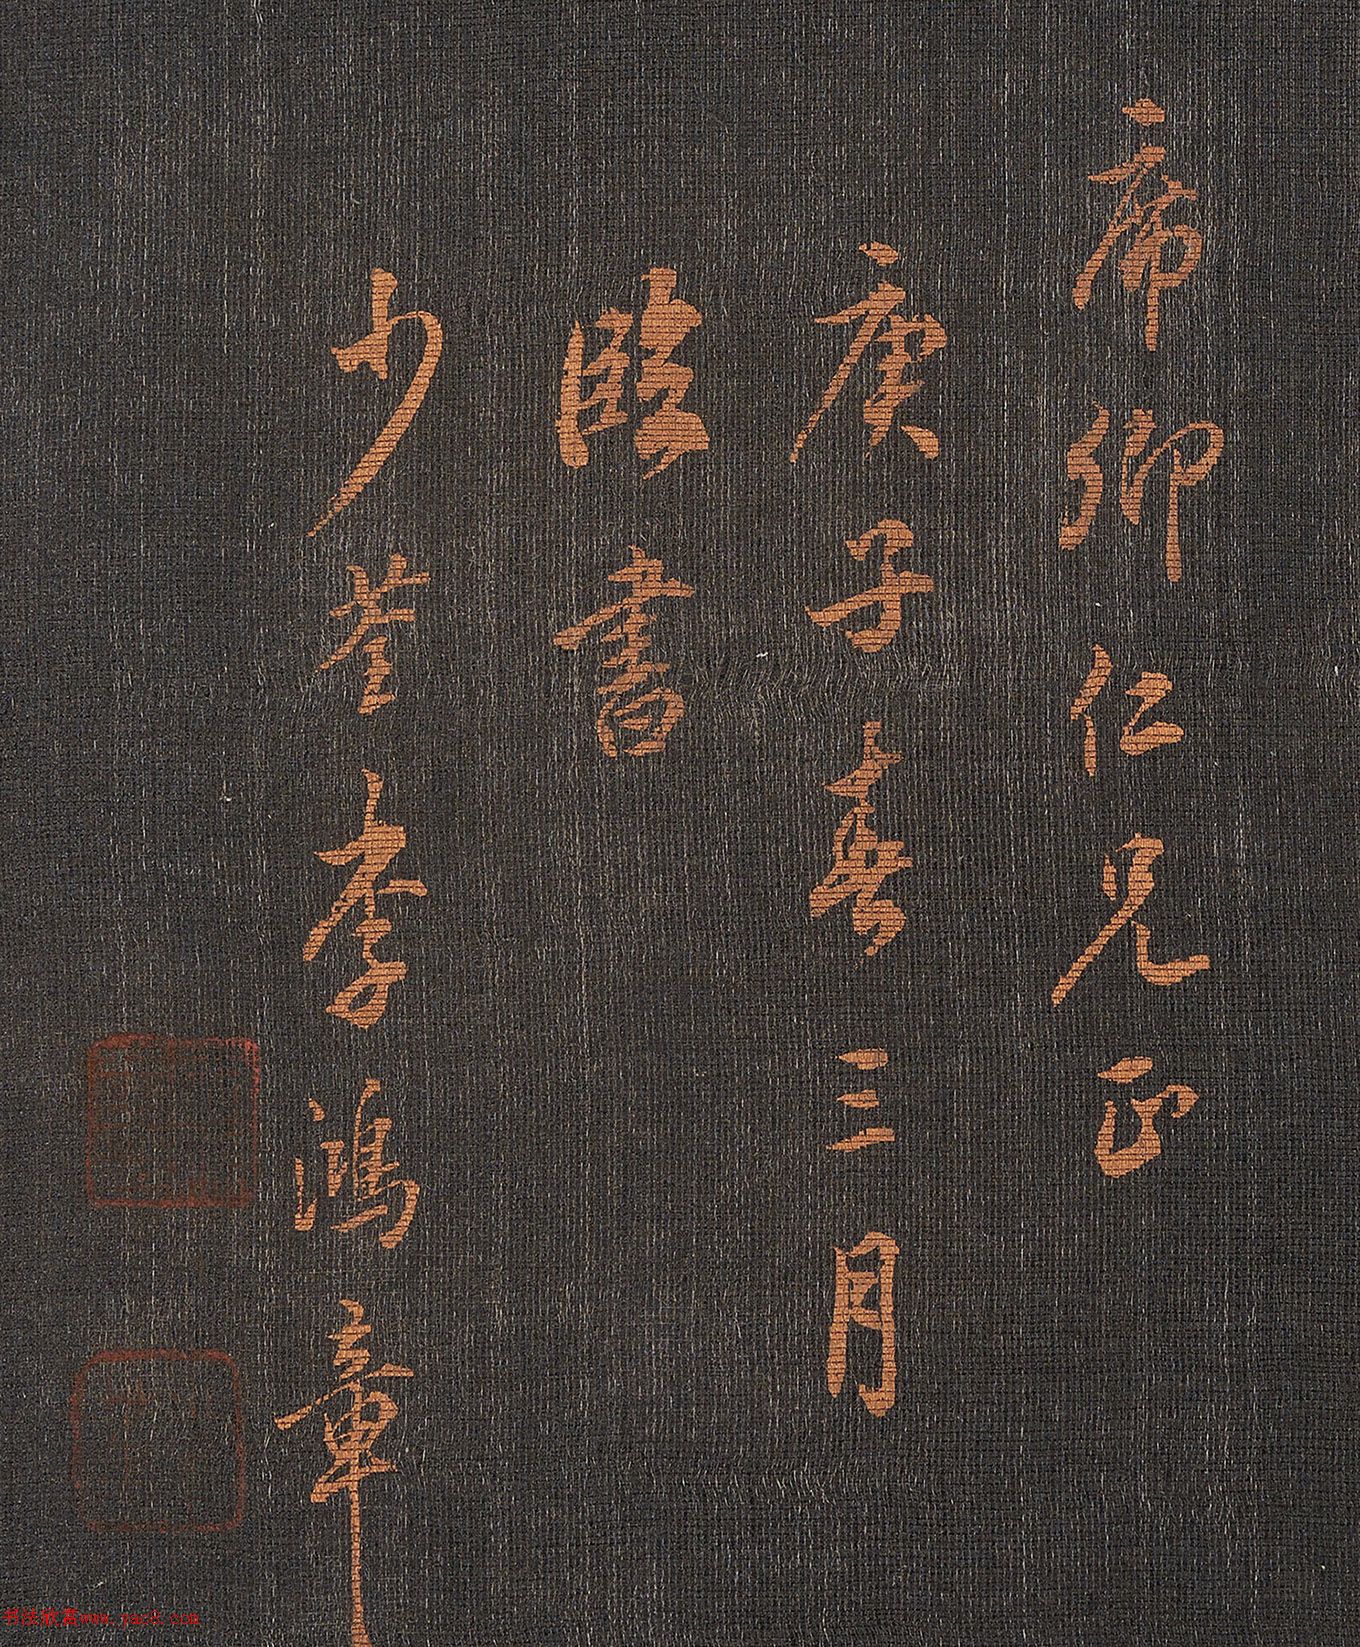 席卿仁兄正
庚子春三月
临書
少荃李鴻章
书法欣赏www.yac8.com